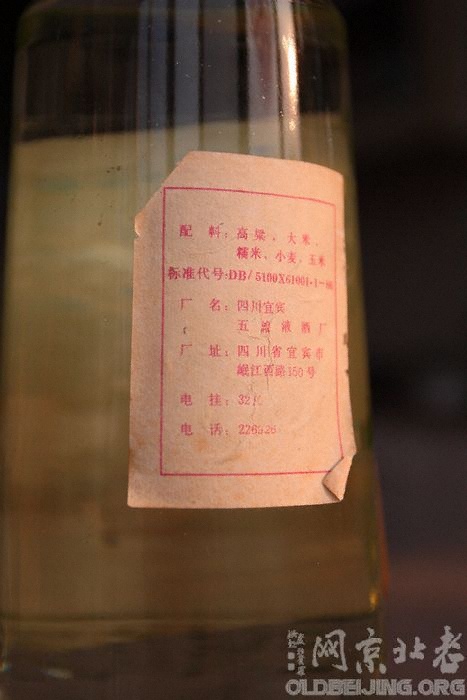 配 料：高粱、大米、
糯米、小麦、玉米
标准代号：DB/5100X61001·1-
厂 名：四川宜宾
五流液酒厂
厂 址：四川省宜宾市
岷江西路150号
电 挂：32
电 话：226926
网京北老
OLDBEIJING.ORG